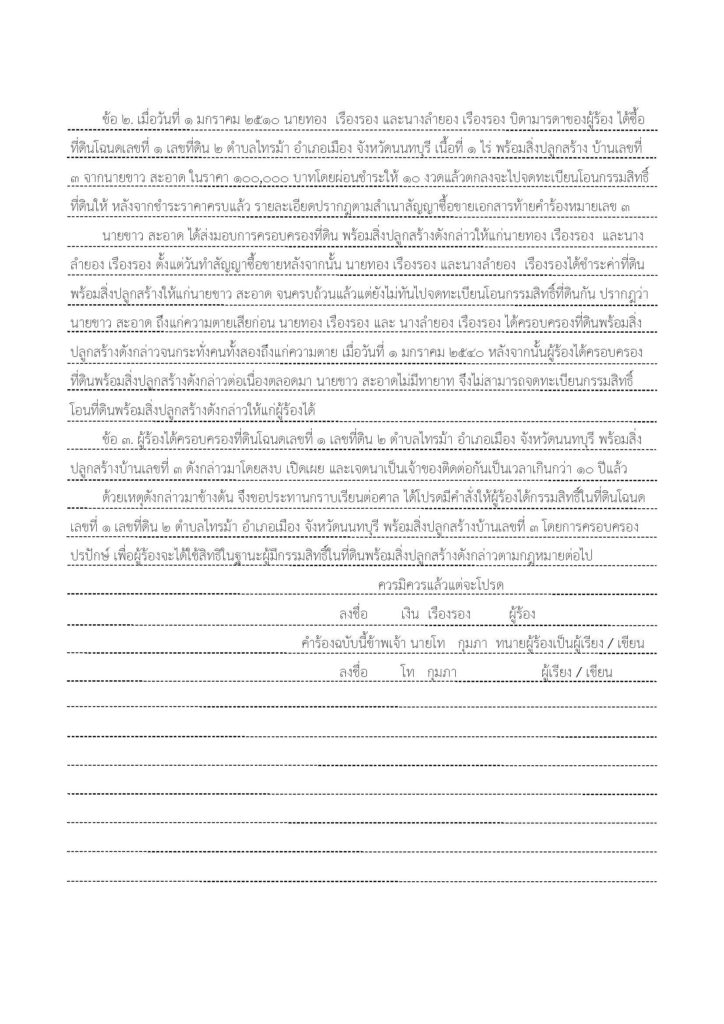 ข้อ ๒. เมื่อวันที่ ๑ มกราคม ๒๕๑๐ นายทอง เรืองรอง และนางลำยอง เรืองรอง บิดามารดาของผู้ร้อง ได้ซื้อ
ที่ดินโฉนดเลขที่ ๑ เลขที่ดิน ๒ ตำบลไทรม้า อำเภอเมือง จังหวัดนนทบุรี เนื้อที่ ๑ ไร่ พร้อมสิ่งปลูกสร้าง บ้านเลขที่
๓ จากนายขาว สะอาด ในราคา ๑๐๐,๐๐๐ บาทโดยผ่อนชำระให้ ๑๐ งวดแล้วตกลงจะไปจดทะเบียนโอนกรรมสิทธิ์
ที่ดินให้ หลังจากชำระราคาครบแล้ว รายละเอียดปรากฏตามสำเนาสัญญาซื้อขายเอกสารท้ายคำร้องหมายเลข ๓
นายขาว สะอาด ได้ส่งมอบการครอบครองที่ดิน พร้อมสิ่งปลูกสร้างดังกล่าวให้แก่นายทอง เรืองรอง และนาง
ลำยอง เรืองรอง ตั้งแต่วันทำสัญญาซื้อขายหลังจากนั้น นายทอง เรืองรอง และนางลำยอง เรืองรองได้ชำระค่าที่ดิน
พร้อมสิ่งปลูกสร้างให้แก่นายขาว สะอาด จนครบถ้วนแล้วแต่ยังไม่ทันไปจดทะเบียนโอนกรรมสิทธิ์ที่ดินกัน ปรากฏว่า
นายขาว สะอาด ถึงแก่ความตายเสียก่อน นายทอง เรืองรอง และ นางลำยอง เรืองรอง ได้ครอบครองที่ดินพร้อมสิ่ง
ปลูกสร้างดังกล่าวจนกระทั่งคนทั้งสองถึงแก่ความตาย เมื่อวันที่ ๑ มกราคม ๒๕๔๐ หลังจากนั้นผู้ร้องได้ครอบครอง
ที่ดินพร้อมสิ่งปลูกสร้างดังกล่าวต่อเนื่องตลอดมา นายขาว สะอาดไม่มีทายาท จึงไม่สามารถจดทะเบียนกรรมสิทธิ์
โอนที่ดินพร้อมสิ่งปลูกสร้างดังกล่าวให้แก่ผู้ร้องได้
ข้อ ๓. ผู้ร้องได้ครอบครองที่ดินโฉนดเลขที่ ๑ เลขที่ดิน ๒ ตำบลไทรม้า อำเภอเมือง จังหวัดนนทบุรี พร้อมสิ่ง
ปลูกสร้างบ้านเลขที่ ๓ ดังกล่าวมาโดยสงบ เปิดเผย และเจตนาเป็นเจ้าของติดต่อกันเป็นเวลาเกินกว่า ๑๐ ปีแล้ว
ด้วยเหตุดังกล่าวมาข้างต้น จึงขอประทานกราบเรียนต่อศาล ได้โปรดมีคำสั่งให้ผู้ร้องได้กรรมสิทธิ์ในที่ดินโฉนด
เลขที่ ๑ เลขที่ดิน ๒ ตำบลไทรม้า อำเภอเมือง จังหวัดนนทบุรี พร้อมสิ่งปลูกสร้างบ้านเลขที่ ๓ โดยการครอบครอง
ปรปักษ์ เพื่อผู้ร้องจะได้ใช้สิทธิในฐานะผู้มีกรรมสิทธิ์ในที่ดินพร้อมสิ่งปลูกสร้างดังกล่าวตามกฎหมายต่อไป
ควรมิควรแล้วแต่จะโปรด
ลงชื่อ เงิน เรืองรอง ผู้ร้อง
คำร้องฉบับนี้ข้าพเจ้า นายโท กุมภา ทนายผู้ร้องเป็นผู้เรียง / เขียน
ลงชื่อ โท กุมภา ผู้เรียง / เขียน